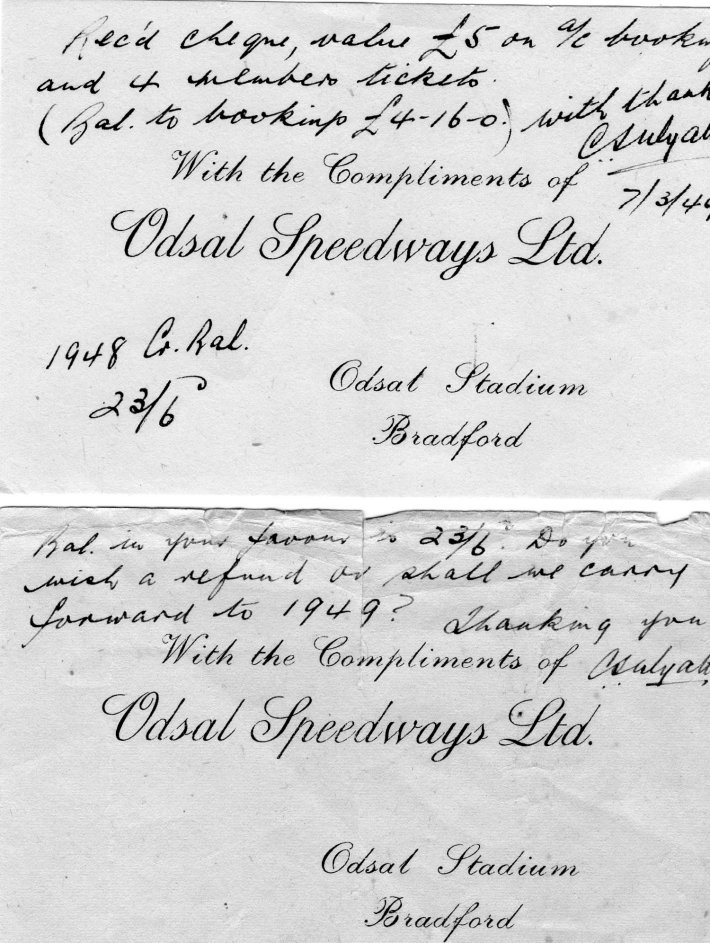 Rec'd cheque, value £5 on a/c
and 4 members tickets.
(Bal. to bookings £4-16-0.) with
With the Compliments of
7/3/49
Odsal Speedways Ltd.
1948 Cr. Bal.
23/6
Odsal Stadium
Bradford
Bal. in your favour is 23/6. Do you
wish a refund or shall we carry
forward to 1949? Thanking you
With the Compliments of
Odsal Speedways Ltd.
Odsal Stadium
Bradford